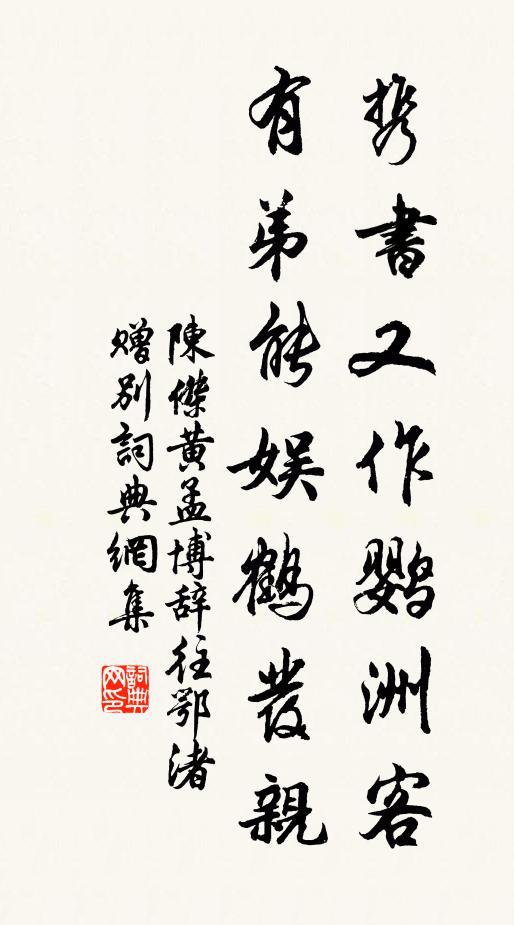 携書又作鹦洲客
有弟能娱鶴發親
陳傑黄孟博辞往鄂渚
贈别詞典網集
詞典網印